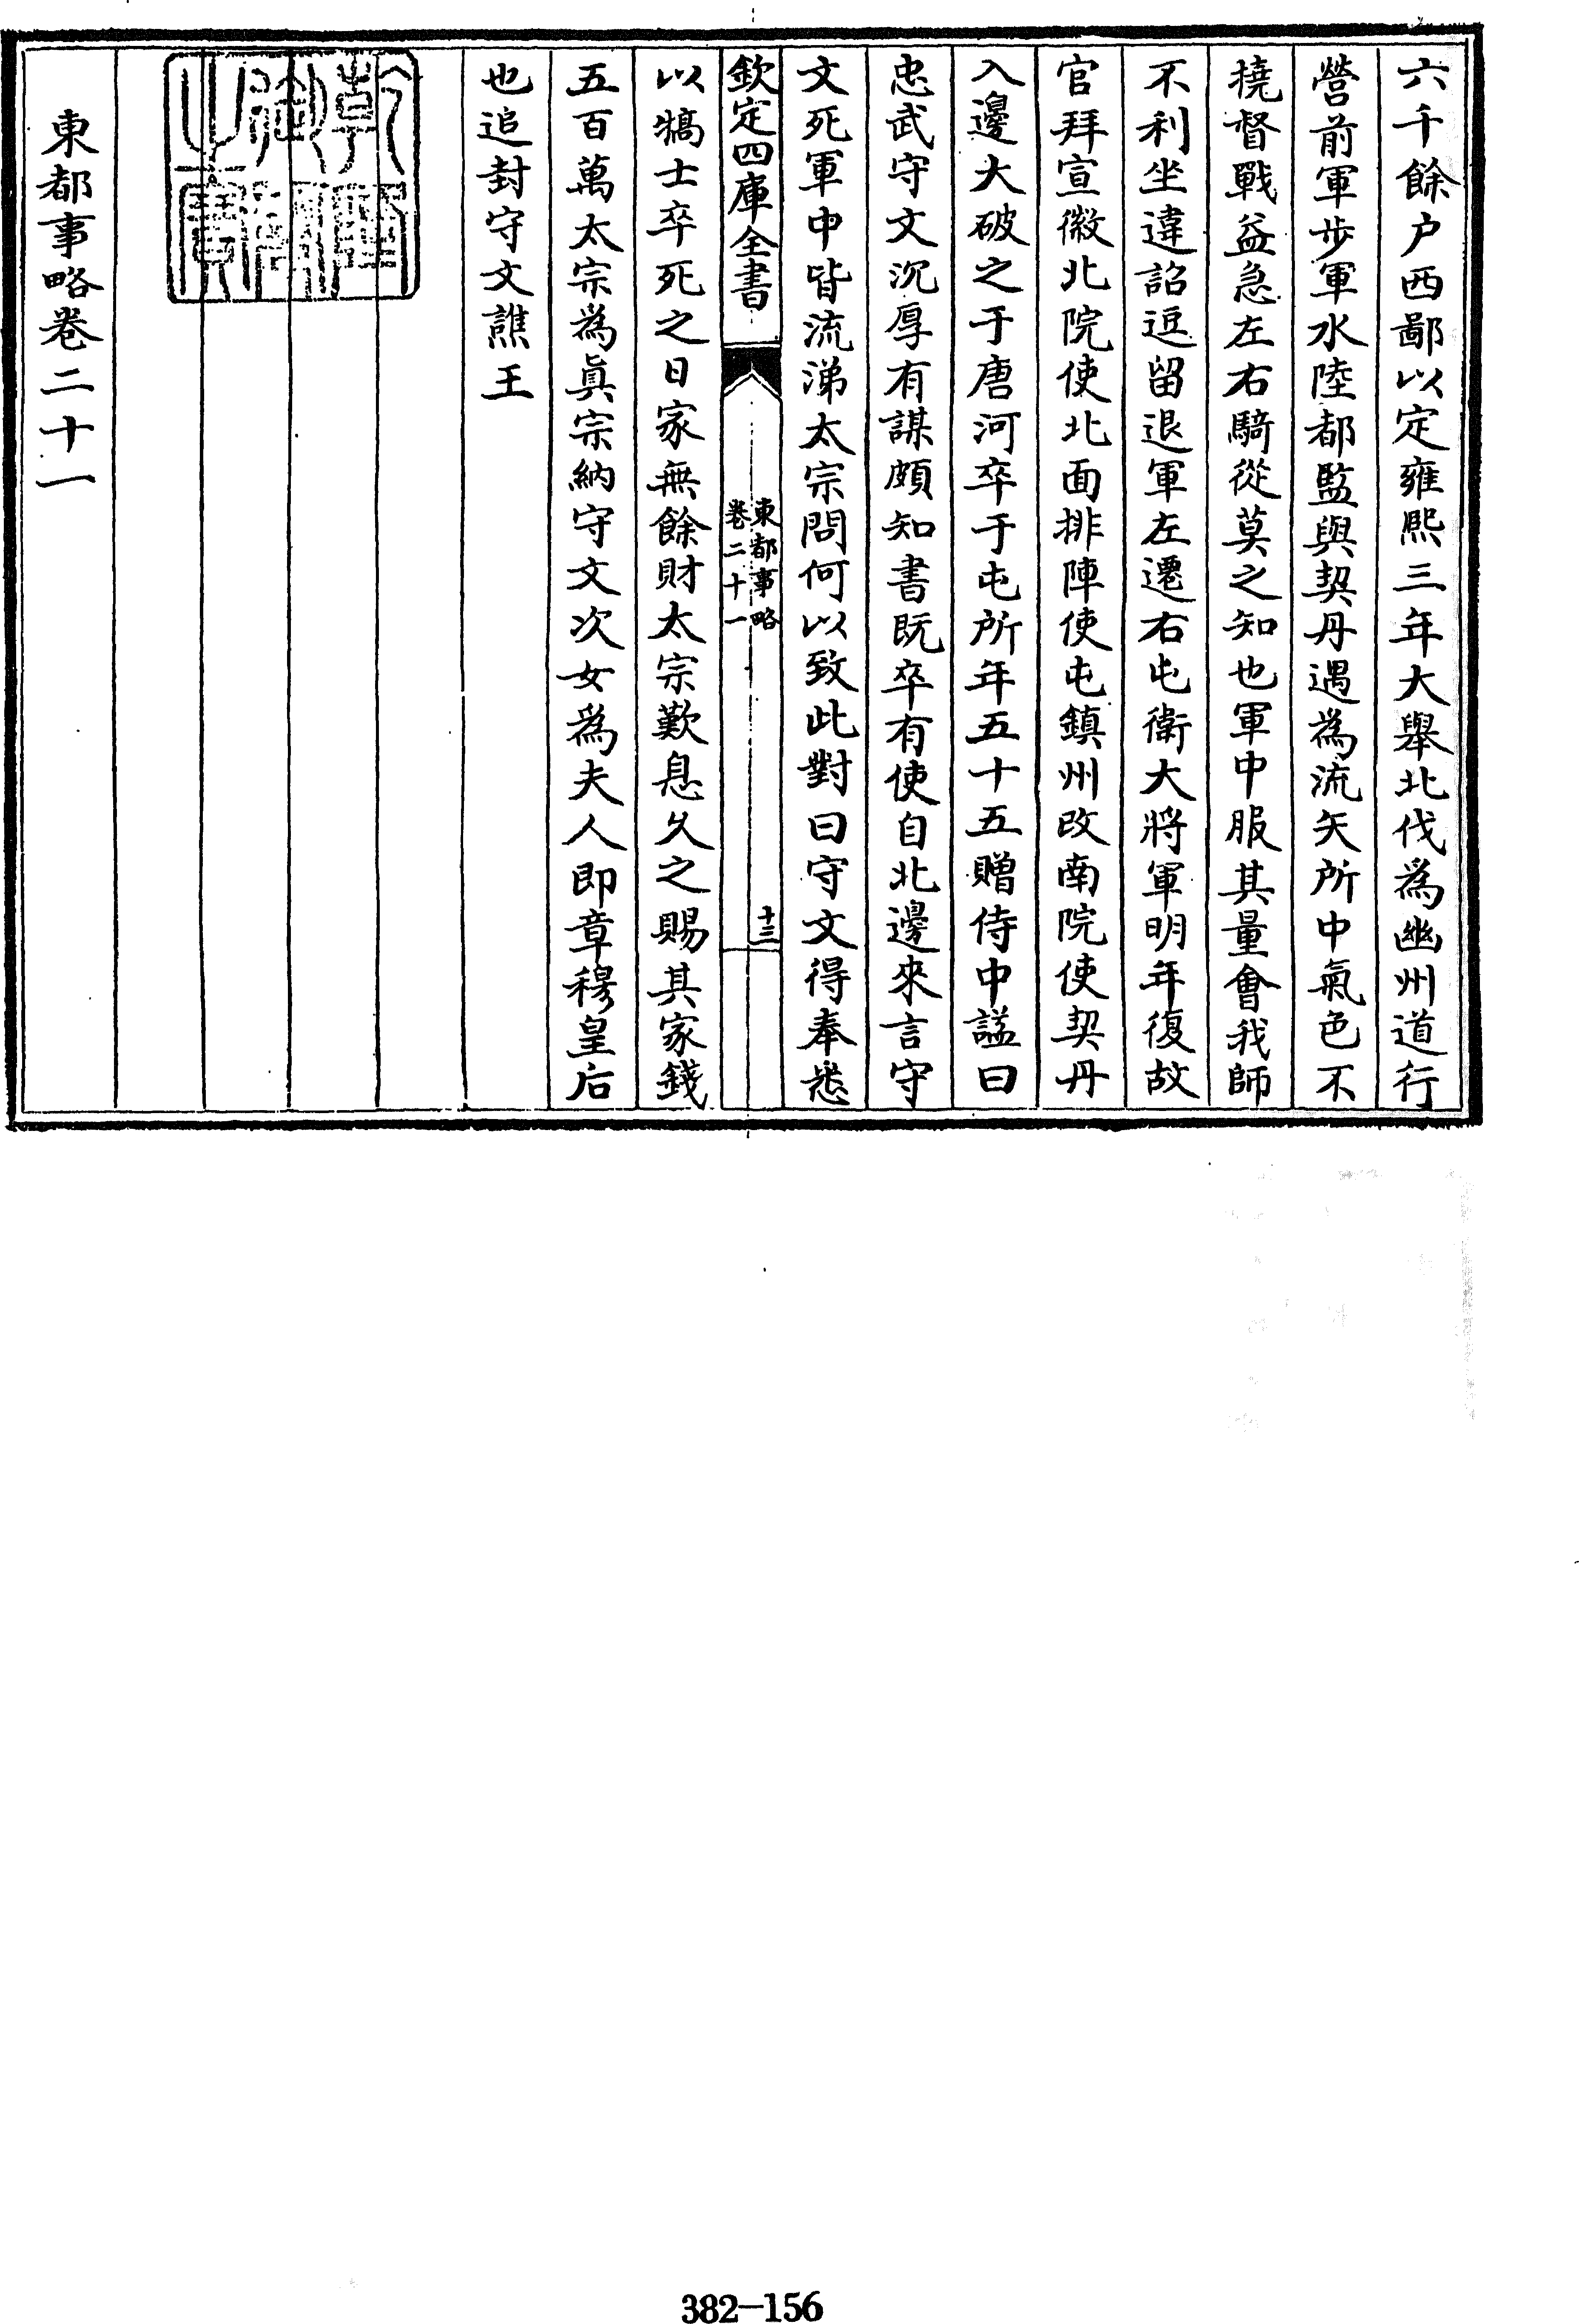 六千餘户西鄙以定雍熙三年大舉北伐為幽州道行
營前軍步軍水陸都監與契丹遇為流矢所中氣色不
撓督戰益急左右騎從莫之知也軍中服其量會我師
不利坐違詔逗留退軍左遷右屯衛大將軍明年復故
官拜宣徽北院使北面排陣使屯鎮州改南院使契丹
入邊大破之于唐河卒于屯所年五十五贈侍中諡曰
忠武守文沉厚有謀頗知書既卒有使自北邊來言守
文死軍中皆流涕太宗問何以致此對曰守文得奉悉
欽定四庫全書
東都事略
卷二十一
十三
以犒士卒死之日家無餘財太宗歎息久之賜其家錢
五百萬太宗為眞宗納守文次女為夫人即章穆皇后
也追封守文譙王
乾隆御覽之寶
東都事略卷二十一
382-156